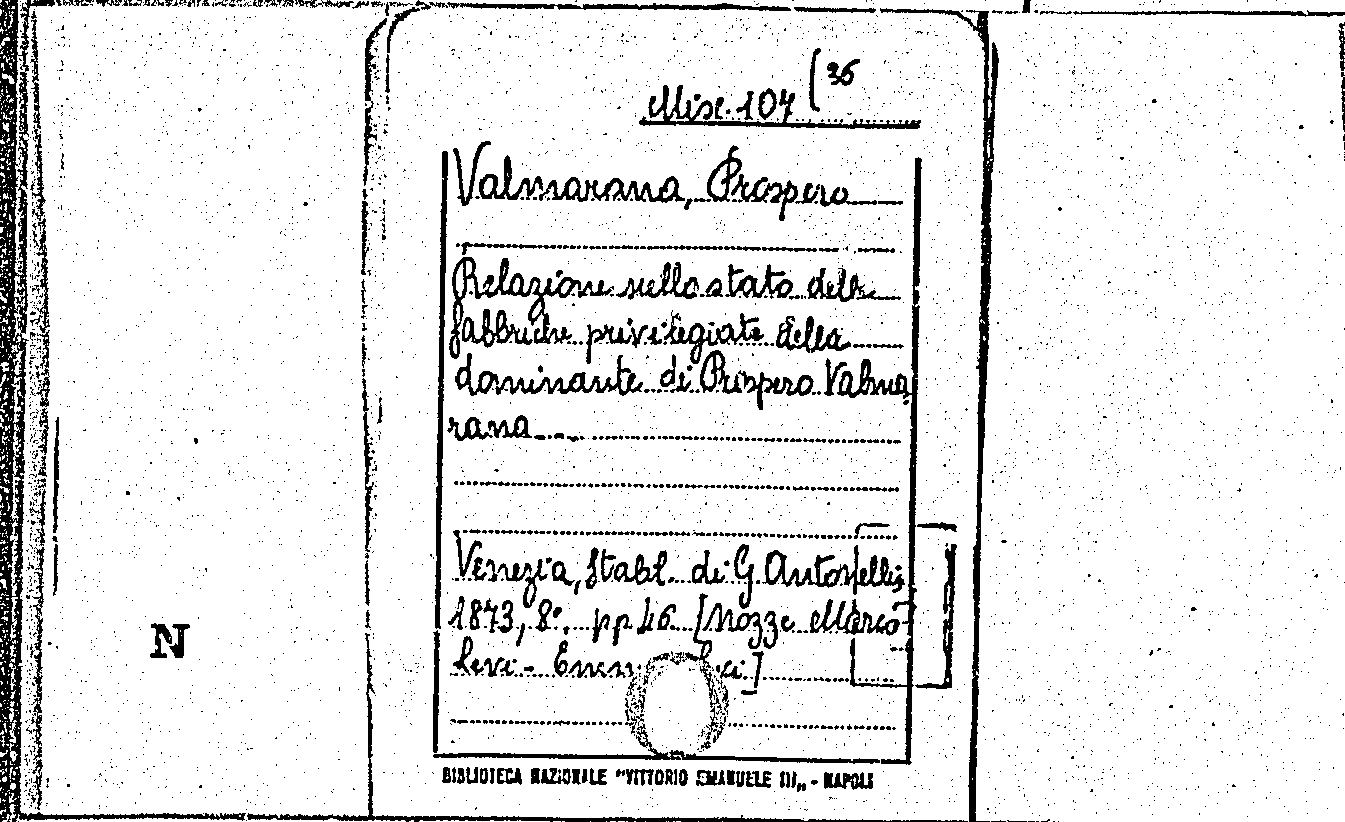 Misc. 107 (36
Valmarana, Prospero
Relazione sullo stato delle
fabbriche privilegiate della
dominante di Prospero Valma
rana...
Venezia, Stabl. di G. Antonelli,
1873, 8°. pp 46 [Nozze Marco
Levi -
N
BIBLIOTECA NAZIONALE "VITTORIO EMANUELE III„ - NAPOLI